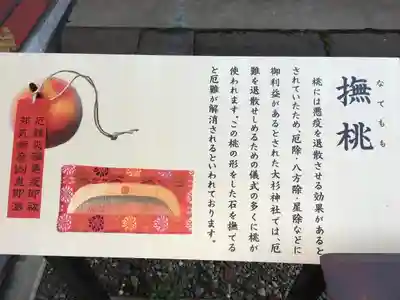 撫桃
なでもも
桃には悪疫を退散させる効果があると
されていたため、厄除・八方除・星除などに
御利益があるとされた大杉神社では、厄
難を退散せしめるための儀式の多くに桃が
使われます。この桃の形をした石を撫でる
と厄難が解消されるといわれております。